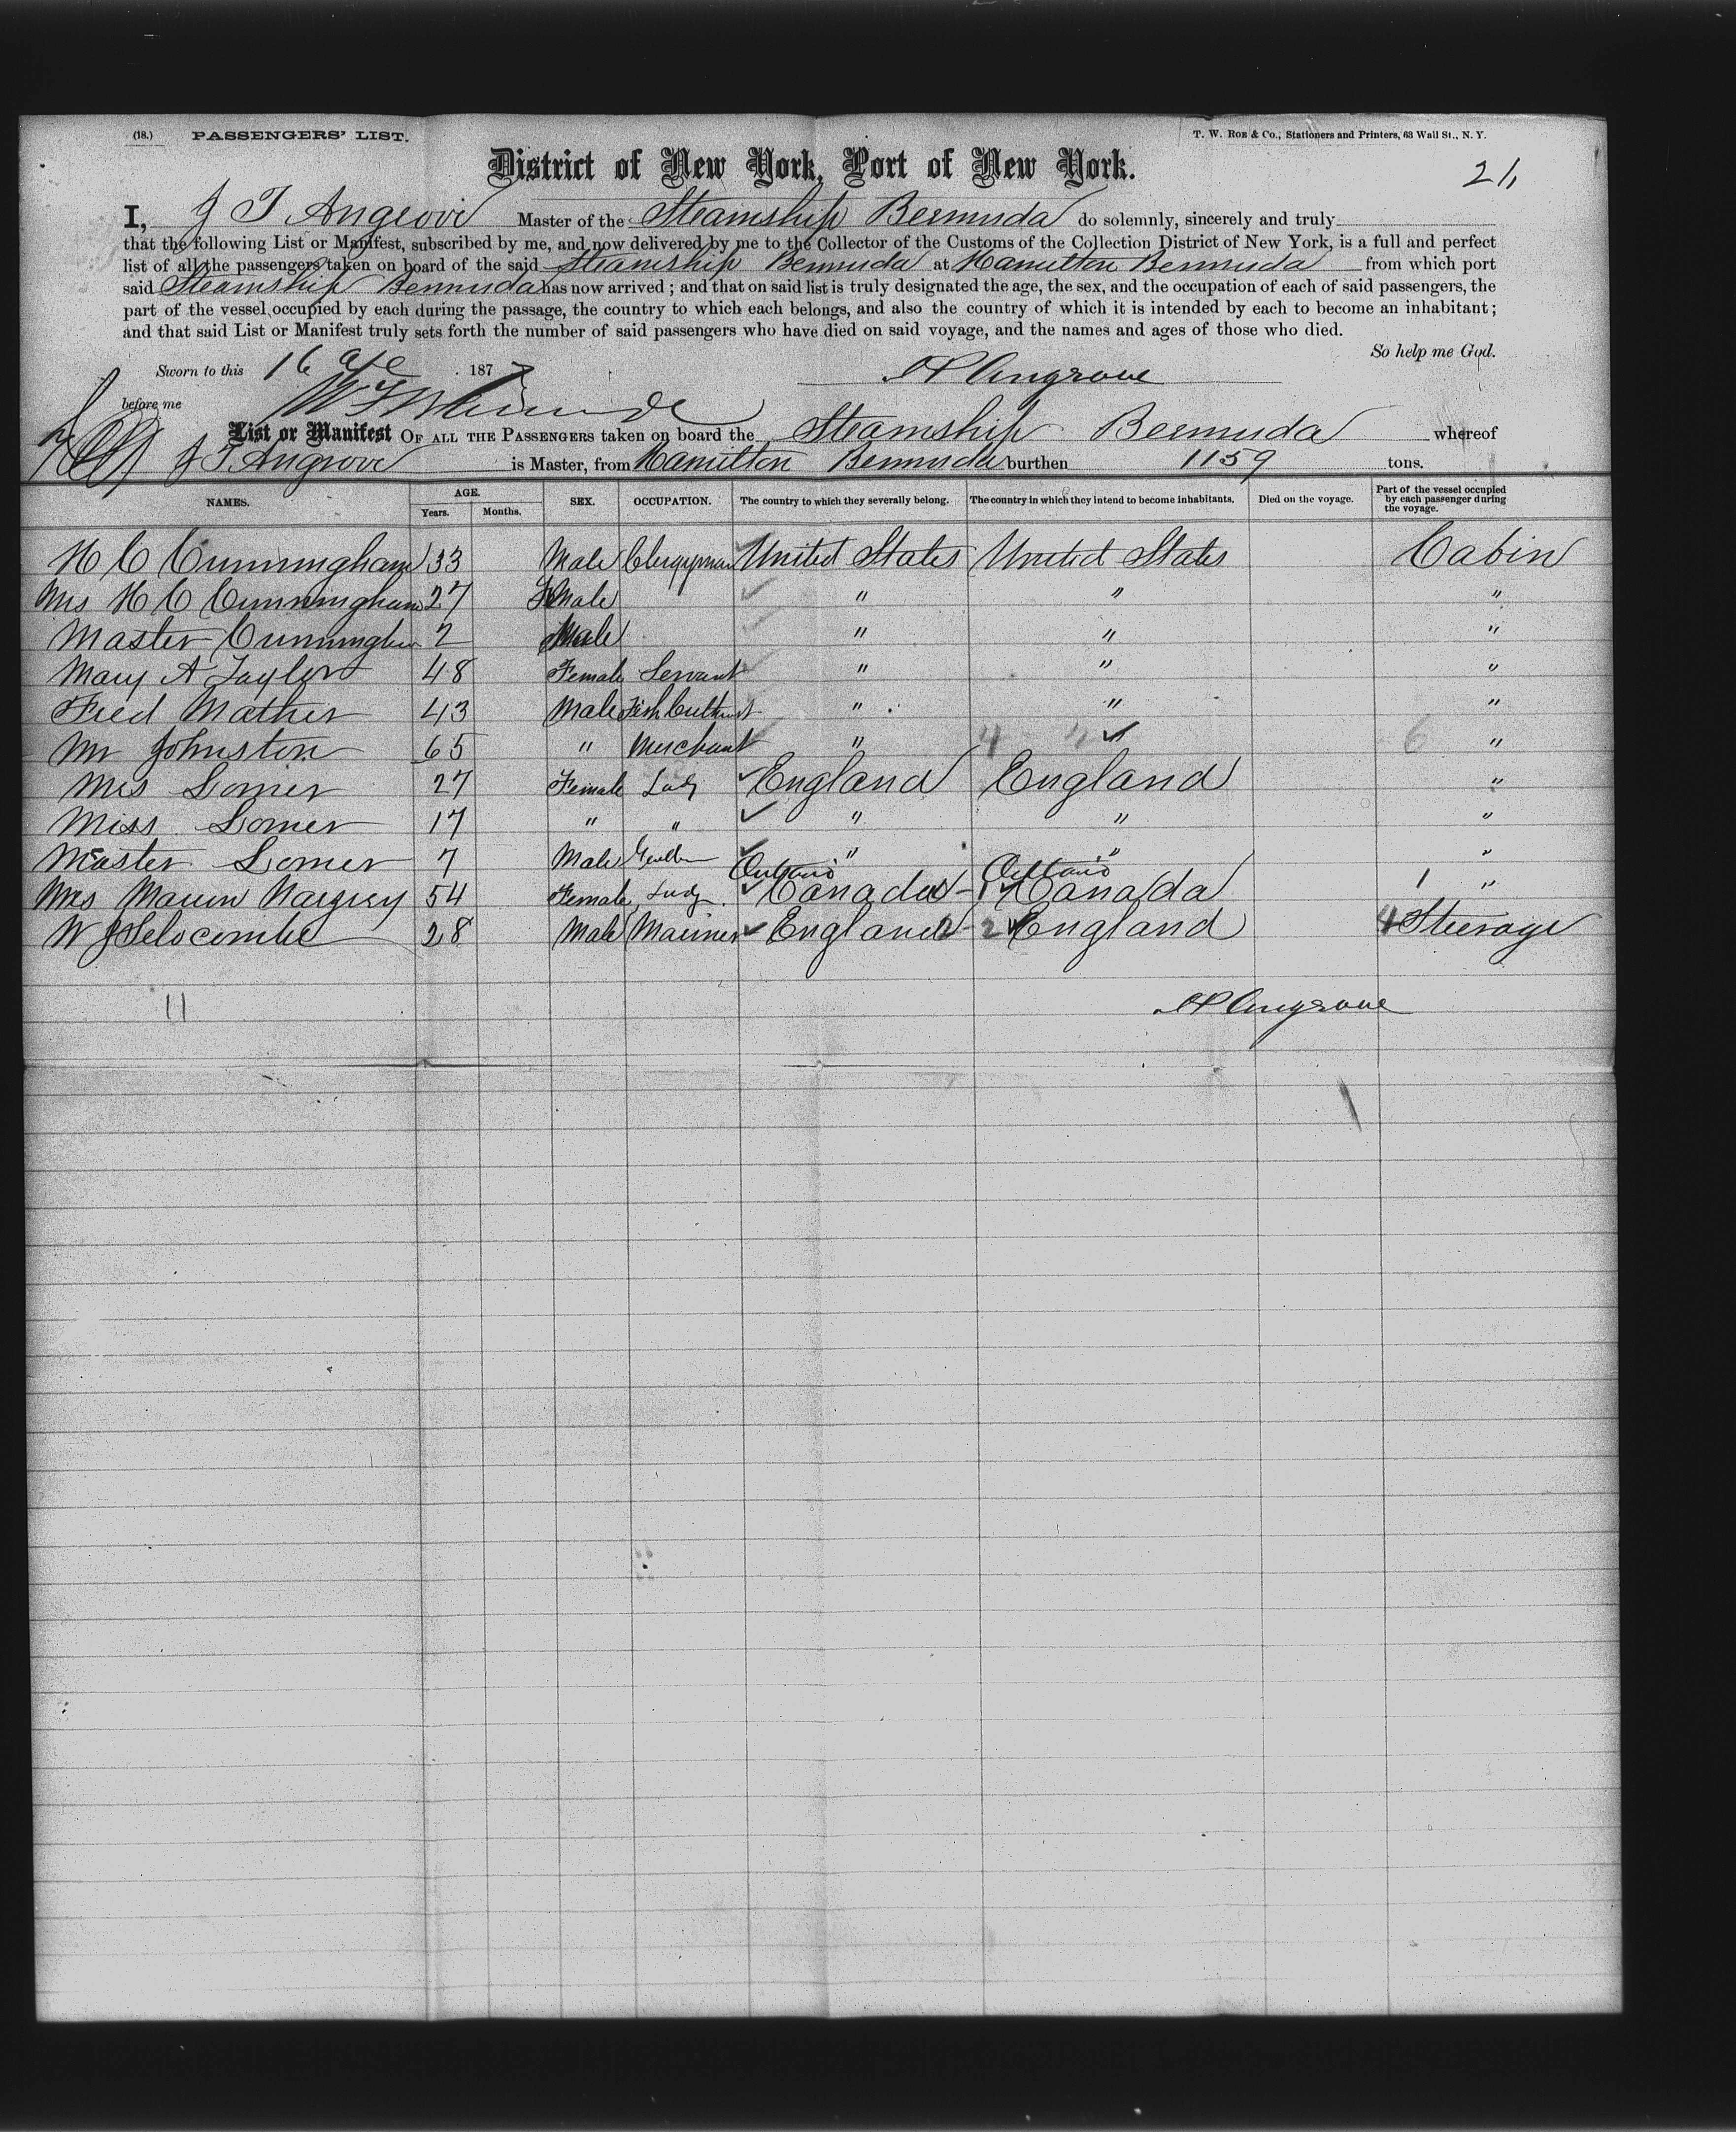 (18.) PASSENGERS' LIST. T. W. ROE & CO., Stationers and Printers, 63 Wall St., N. Y.
District of New York, Port of New York.
I, J T Angrove Master of the Steamship Bermuda do solemnly, sincerely and truly
that the following List or Manifest, subscribed by me, and now delivered by me to the Collector of the Customs of the Collection District of New York, is a full and perfect
list of all the passengers taken on board of the said Steamship Bermuda at Hamilton Bermuda from which port
said Steamship Bermuda has now arrived; and that on said list is truly designated the age, the sex, and the occupation of each of said passengers, the
part of the vessel occupied by each during the passage, the country to which each belongs, and also the country of which it is intended by each to become an inhabitant;
and that said List or Manifest truly sets forth the number of said passengers who have died on said voyage, and the names and ages of those who died.
So help me God.
Sworn to this 16 1877 Angrove
before me
List or Manifest OF ALL THE PASSENGERS taken on board the Steamship Bermuda whereof
J T Angrove is Master, from Hamilton Bermuda burthen 1159 tons.
NAMES. AGE. Years. Months. SEX. OCCUPATION. The country to which they severally belong. The country in which they intend to become inhabitants. Died on the voyage. Part of the vessel occupied by each passenger during the voyage.
H C Cunningham 33 Male Clergyman United States United States Cabin
Mrs H C Cunningham 27 Female " " "
Master Cunningham 2 Male " " "
Mary A Taylor 48 Female Servant " " "
Fred Mather 43 Male Fish Culturist " " "
Mr Johnston 65 " Merchant " 4 " 6 "
Mrs Lomer 27 Female Lady England England "
Miss Lomer 17 " " " " "
Master Lomer 7 Male " " "
Ontario Ontario
Mrs 54 Female Lady Canada 1 Canada 1 "
W J Selocombe 28 Male Mariner England 2 2 England 4 Steerage
11 Angrove